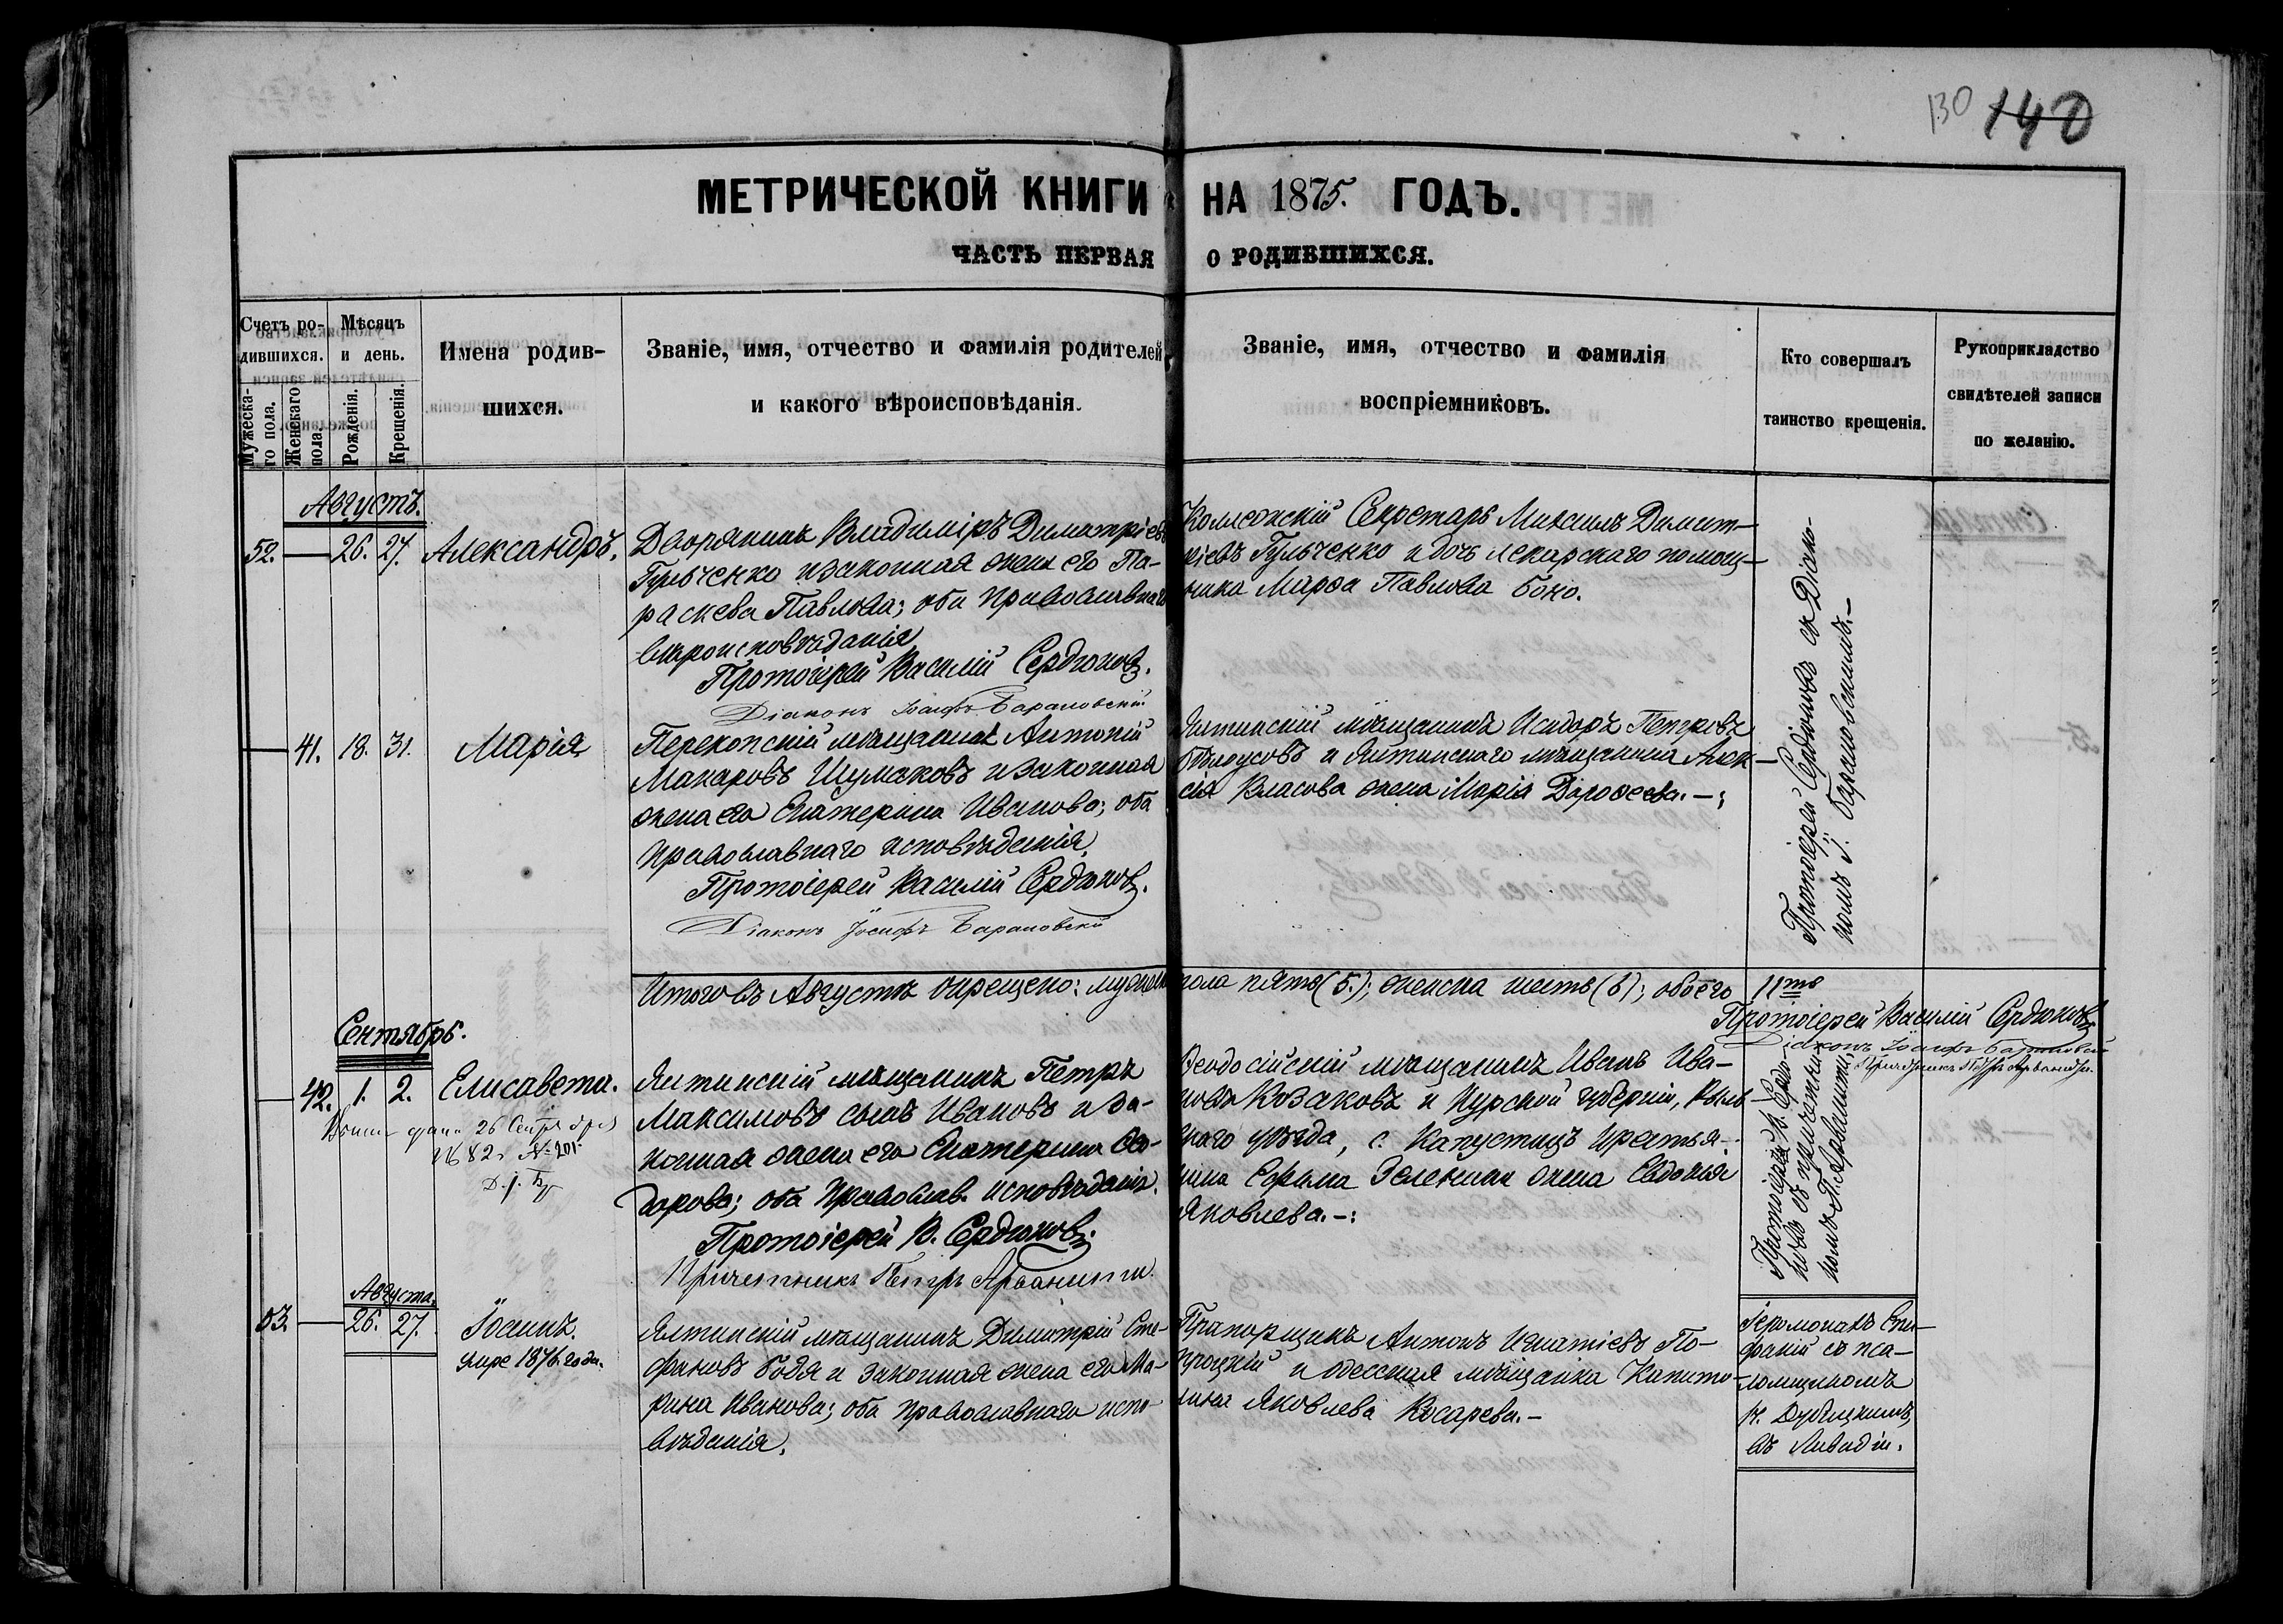 130 140
МЕТРИЧЕСКОЙ КНИГИ НА 1875. ГОДЪ.
ЧАСТЬ ПЕРВАЯ О РОДИВШИХСЯ.
Счетъ ро-
дившихся.
Мужеска-
го пола.
Женскаго
пола.
Мѣсяцъ
и день.
Рожденія.
Крещенія.
Имена родив-
шихся.
Званіе, имя, отчество и фамилія родителей
и какого вѣроисповѣданія.
Званіе, имя, отчество и фамилія
воспріемниковъ.
Кто совершалъ
таинство крещенія.
Рукоприкладство
свидѣтелей записи
по желанію.
Августъ.
52. — 26. 27. Александръ.
Дворянинъ Владиміръ Димитріевъ
Гульченко и законная жена его Па-
раскева Павлова; оба православнаго
вѣроисповѣданія
Протоіерей Василій Сердюковъ.
Діаконъ Іосифъ Барановскій
Коллежскій Секретарь Михаилъ Димит-
ріевъ Гульченко и дочь лекарскаго помощ-
ника Марѳа Павлова Боно.
Протоіерей Сердюковъ съ Діако-
номъ І. Барановскимъ.—
— 41. 18. 31. Марія
Перекопскій мѣщанинъ Антоній
Макаровъ Шумаковъ и законная
жена его Екатерина Иванова; оба
православнаго исповѣданія.
Протоіерей Василій Сердюковъ.
Діаконъ Іосифъ Барановскій
Ялтинскій мѣщанинъ Исидоръ Петровъ
Бѣлоусовъ и Ялтинскаго мѣщанина Алек-
сія Власова жена Марія Дороѳеева.—;
Итого въ Августѣ окрещено: мужеска пола пять (5.); женска шесть (6); обоего 11ть
Протоіерей Василій Сердюковъ
Діаконъ Іосифъ Барановскій
Причетникъ Петръ Арванити.
Сентябрь.
— 42. 1. 2. Елисавета.
26 Сентября
1882 г № 201
Ялтинскій мѣщанинъ Петръ
Максимовъ сынъ Ивановъ и за-
конная жена его Екатерина Ѳео-
дорова; оба православ. исповѣданія.
Протоіерей В. Сердюковъ.
Причетникъ Петръ Арванити.
Ѳеодосійскій мѣщанинъ Иванъ Ива-
новъ Козаковъ и Курской губерніи, Рыль-
скаго уѣзда, с. Капустицъ крестья-
нина Ефима Зеленина жена Евдокія
Яковлева.—:
Протоіерей В. Сердю-
ковъ съ причетни-
комъ П. Арванити.
Августа.
53. — 26. 27. Іоаннъ.
умре 1876 года.
Ялтинскій мѣщанинъ Димитрій Сте-
фановъ Бодя и законная жена его Ма-
рина Иванова; оба православнаго испо-
вѣданія.
Прапорщикъ Антонъ Игнатіевъ По-
троцкій и одесская мѣщанка Капито-
лина Яковлева Косарева.—
Іеромонахъ Епи-
фаній съ пса-
ломщикомъ
К. Дубицкимъ,
въ Ливадіи.